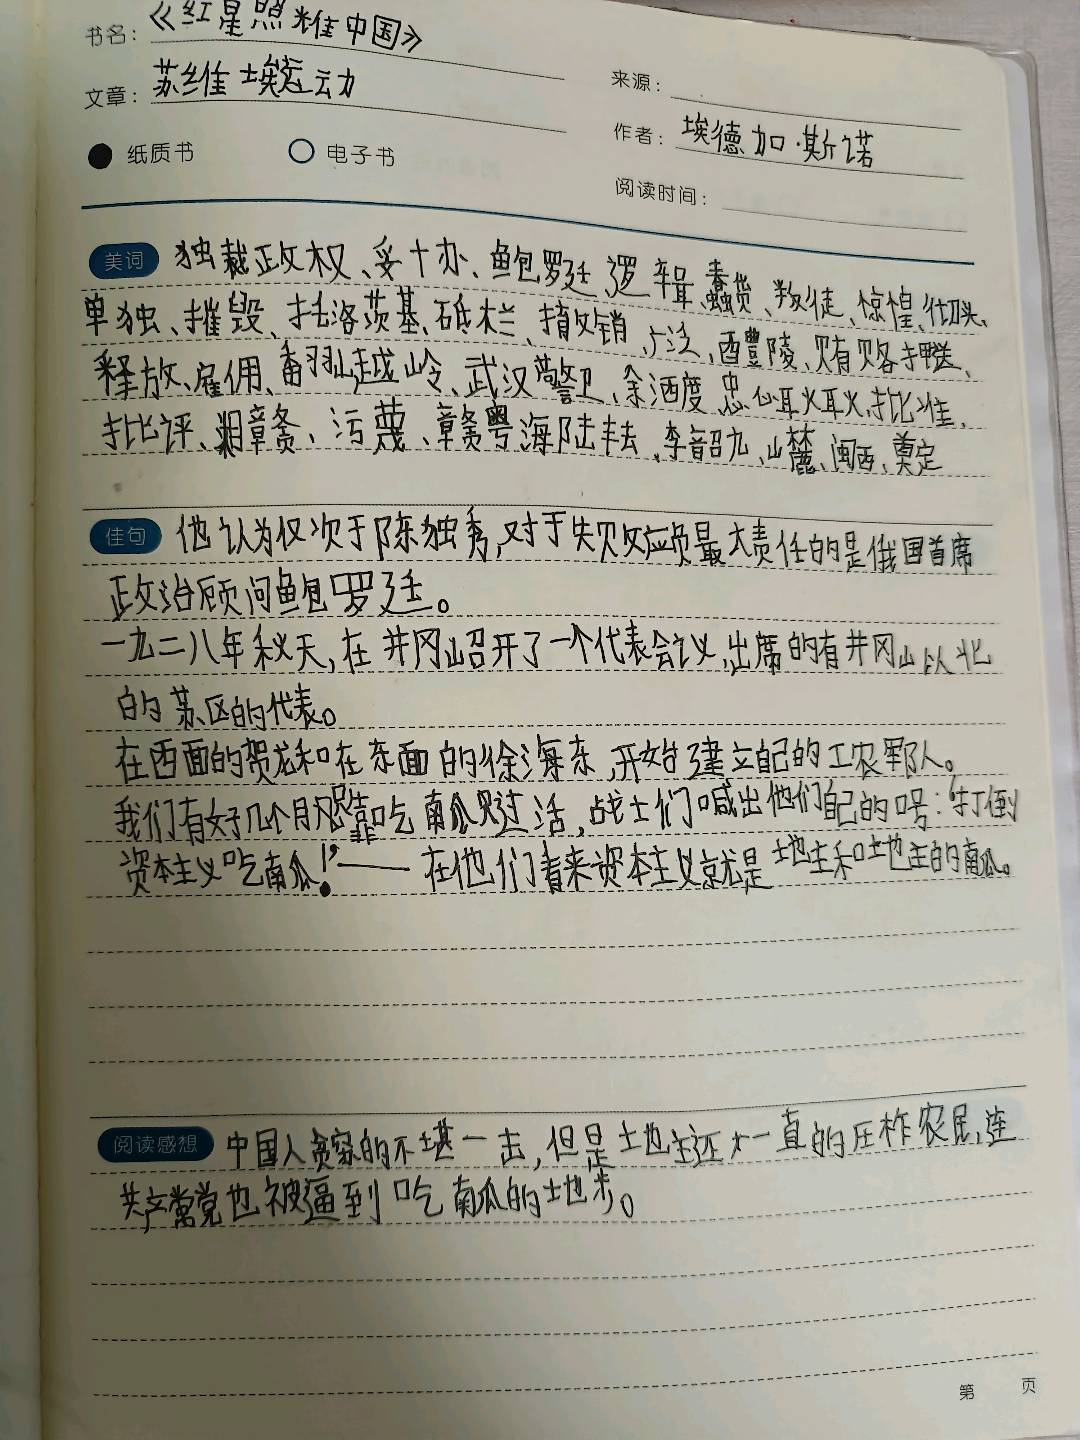 书名：《红星照耀中国》
文章：苏维埃运动
来源：
作者：埃德加·斯诺
纸质书 电子书
阅读时间：
美词 独裁政权、妥十办、鲍罗廷、逻辑、蠢货、叛徒、惊惶、街头、
单独、摧毁、托洛茨基、砥栏、撤销、广泛、醴陵、贿赂、押送、
释放、雇佣、翻山越岭、武汉警卫、余洒度、忠心耿耿、批准、
批评、湘赣、污蔑、赣粤、海陆丰、李韶九、山麓、闽西、奠定
佳句 他认为仅次于陈独秀，对于失败应负最大责任的是俄国首席
政治顾问鲍罗廷。
一九二八年秋天，在井冈山召开了一个代表会议，出席的有井冈山以北
的苏区的代表。
在西面的贺龙和在东面的徐海东，开始建立自己的工农军队。
我们有好几个月只靠吃南瓜过活，战士们喊出他们自己的口号：“打倒
资本主义吃南瓜！”——在他们看来资本主义就是地主和地主的南瓜。
阅读感想 中国人贫穷的不堪一击，但是土地主还大一直的压榨农民，连
共产党也被逼到吃南瓜的地步。
第 页